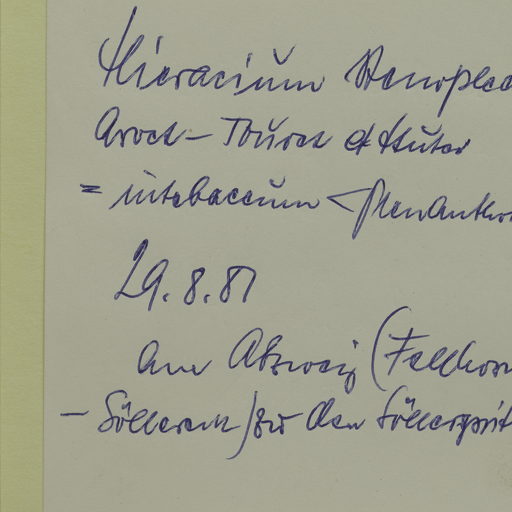 Hieracium stenoplec
Arvet-Touvet et Huter
= intybaceum < prenantho
29.8.81
Am Abzweig (Fellhorn
- Söllereck) zu den Söllerspit